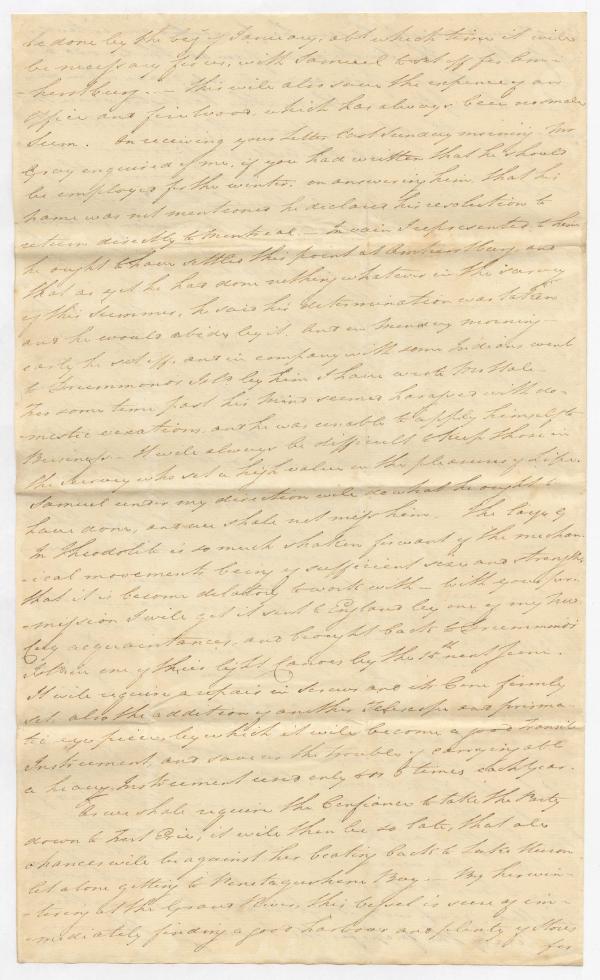 be done by the beg.g of January, abt which time it will
be necessary for us, with Samuel to set off for Am-
-herstburg. — this will also save the expence of an
Office and firewood, which has always been no small
Sum. On receiving your Letter last Sunday morning Mr
Gray enquired of me, if you had written that he should
be employed for the winter. on answering him, that his
name was not mentioned he declared his resolution to
return directly to Montreal. — In vain I represented to him
he ought to have settled this point at Amherstburg, and
that as yet he has done nothing whatever in the survey
of this Summer, he said his determination was taken
and he would abide by it. And on Monday morning
early he set off, and in company with some Indians went
to Drummonds Isld by him I have wrote Mr Hale.
For some time past his mind seemed harassed with do-
-mestic vexations, and he was unable to apply himself to
Business — It will always be difficult to keep those in
the Survey who set a high value on the pleasures of Life.
Samuel under my direction will do what he ought to
have done, and we shall not miss him. The large 9
In Theodolite is so much shaken for want of the mechan-
-ical movements being of sufficient size and strength,
that it is become delatory to work with — with your per-
-mission I will get it sent to England by one of my
acquaintances, and brought back to Drummond's
Isld in one of their light Canoes by the 15th next June.
It will require a repair in Screws and its Cone firmly
set also the addition of another Telescope and prisma-
-tic eye pieces by which it will become a good Transit
Instrument, and save us the trouble of carrying abt
a heavy Instrument used only 5 or 6 times each year.
As we shall require the Confiance to take the Party
down to Fort Erie, it will then be so late, that all
chances will be against her beating back to Lake Huron
let alone getting to Penetagushene Bay. — By her win-
-tering at the Grand River, this Vessel is sure of im-
-mediately finding a good harbour and plenty of Stores
for